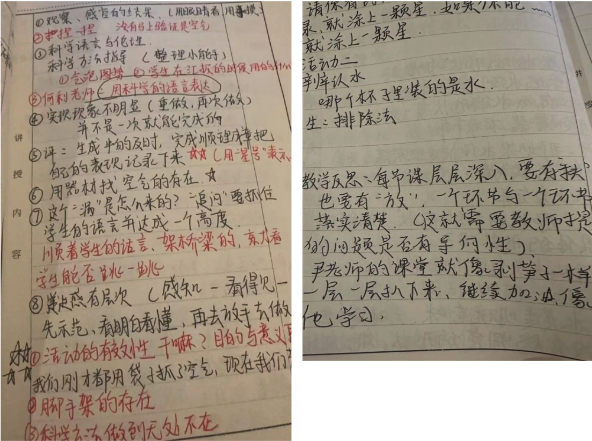 ①观察、感官的结果.(用眼睛看 用
②
③科学语言与伦理.
科学方法指导 (整理小能手)
①气泡图 ②学生在汇报的时候,用的
③何利老师:用科学的语言表达
④实验现象不明显(重做,再次做)
并不是一次就能完成的
⑤评:生成 的及时,完成顺理成章把
自己的表现记录下来 ☆☆(用"星号"表示
⑥用器材找空气的存在 ☆
⑦这个"漏"是怎么来的?"追问"要抓住
学生的语言并达成一个高度.
顺着学生的话言,架桥梁的,
学生能否跳一跳
⑧ 有层次 (感知—看得见—
先示范、看明白看懂,再去放手去做
①活动的有效性 干嘛?目的与意义
我们刚才都用袋子抓了空气,现在我们
②脚手架的存在
③科学方法做到无处不在
讲
授
内
容
录,就涂上一颗星.如果不能
就涂上一颗星.
活动二
辨认水
哪个杯子里装的是水.
生:排除法
教学反思:每节课层层深入,要有秩
也要有"放",一个环节与一个环节
落实清楚.(这就需要教师提
的问题是否有导向性)
尹老师的课堂就像剥笋子一样
一层一层扒下来.继续加油,像
他学习.